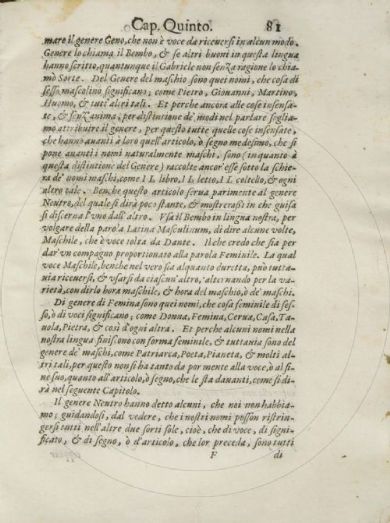 Cap. Quinto. 81
mare il genere Geno, che non è voce da riceuersi in alcun modo.
Genere lo chiama il Bembo, & se altri buoni in questa lingua
hanno scritto, quantunque il Gabriele non senza ragione lo chia
mò Sorte. Del Genere del maschio sono quei nomi, che cosa di
sesso mascolino significano; come Pietro, Giouanni, Martino,
Huomo, & tutti altri tali. Et perche ancora alle cose insensa-
te, & senz'anima, per distintione de' modi nel parlare soglia-
mo attribuire il genere, per questo tutte quelle cose insensate,
che hanno auanti à loro quell'articolo, ò segno medesimo, che si
pone auanti i nomi naturalmente maschi, sono (in quanto à
questa distintione del Genere) raccolte ancor'esse sotto la schie-
ra de' nomi maschi, come IL libro, IL letto, IL coltello, & ogni
altro tale. Benche questo articolo serua parimente al genere
Neutro, del quale si dirà poco stante, & mostrerassi in che guisa
si discerna l'uno dall'altro. Vsa il Bembo in lingua nostra, per
volgare della parola Latina Masculinum, di dire alcune volte,
Maschile, che è voce tolta da Dante. Il che credo che sia per
dar'vn compagno proportionato alla parola Feminile. La qual
voce Maschile, benche nel vero sia alquanto duretta, può tutta-
uia riceuersi, & vsarsi da ciascun'altro, alternando per la va-
rietà, con dirlo hora maschile, & hora del maschio, ò de' maschi.
Di genere di Femina sono quei nomi, che cosa feminile di ses-
so, ò di voci significano; come Donna, Femina, Cerua, Casa, Ta-
uola, Pietra, & così d'ogni altra. Et perche alcuni nomi nella
nostra lingua finiscono con forma feminile, & tuttauia sono del
genere de' maschi, come Patriarca, Poeta, Pianeta, & molti al-
tri tali, per questo non si ha tanto da por mente alla voce, ò al fi-
ne suo, quanto all'articolo, ò segno, che le sta dauanti, come si di-
rà nel seguente Capitolo.
Il genere Neutro hanno detto alcuni, che noi non habbia-
mo; guidandosi, dal vedere, che i nostri nomi possōn ristrin-
gersi tutti nell'altre due sorti sole, cioè, che di voce, di signi-
ficato, & di segno, ò d'articolo, che lor preceda, sono tutti
F di